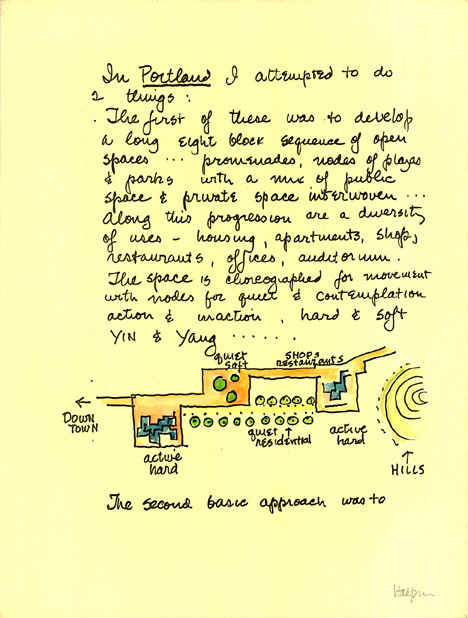 In Portland I attempted to do
2 things :
. The first of these was to develop
a long eight block sequence of open
spaces ... promenades, nodes of plazas
& parks with a mix of public
space & private space interwoven ...
Along this progression are a diversity
of uses - housing, apartments, shops,
restaurants, offices, auditorium.
The space is choreographed for movement
with nodes for quiet & contemplation
action & inaction, hard & soft
YIN & Yang ......
quiet
soft
SHOPS
restaurants
DOWN
TOWN
active
hard
quiet
residential
active
hard
HILLS
The second basic approach was to
Halprin